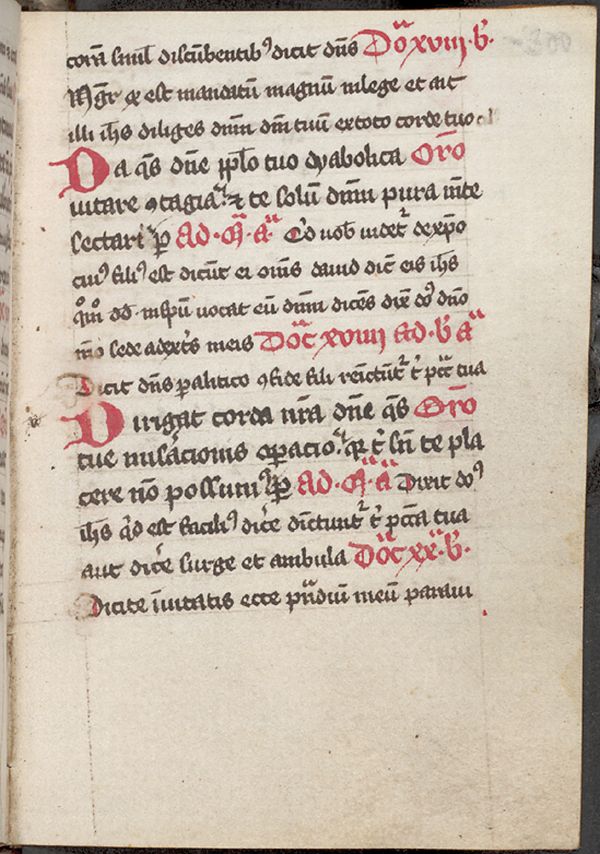 corā simul̄ discūbentib⁹ dicit dn̄s Doᷓ xviii · b᷑ ·
Mḡr qͥ est mandatū magnū ī lege et ait
illi ih̄s diliges dn̄m dm̄ tuū ex toto corde tuo
Da qs̄ dn̄e pp̄lo tuo dyabolica Oro᷑
vitare ꝯtagia · ⁊ te solū dm̄m pura mēte
sectari ꝑ Ad · mᷓ · aᷓ Qͥd uob̄ videt᷑ de xp̄o
cui⁹ fili⁹ est dicūt ei oīns dauid dic̄ eis ih̄s
qͦmͦ dd̄ · in sp̄u uocat eū dn̄m dicēs dix̄ do᷑s dn̄o
m̄o sede a dext᷑s meis Do᷑c xviiii ad · b᷑ aᷓ
Dicit dn̄s paralitico ꝯfide fili remīctūt᷑ t᷑ pcc̄a tua
Dirigat corda nr̄a dn̄e qs̄ Oro᷑
tue mis᷑acionis oꝑacio · qr t᷑ sn̄ te pla
cere nō possum⁹ ꝑ Ad · mᷓ · aᷓ Dixit do⁹
ih̄s qͥd est facili⁹ dic᷑e dimīctūt᷑ t᷑ pcc̄a tua
aut dic᷑e surge et ambula Do᷑c xx · b᷑ ·
Dicite īuitatis ecce prādiū meū paraui